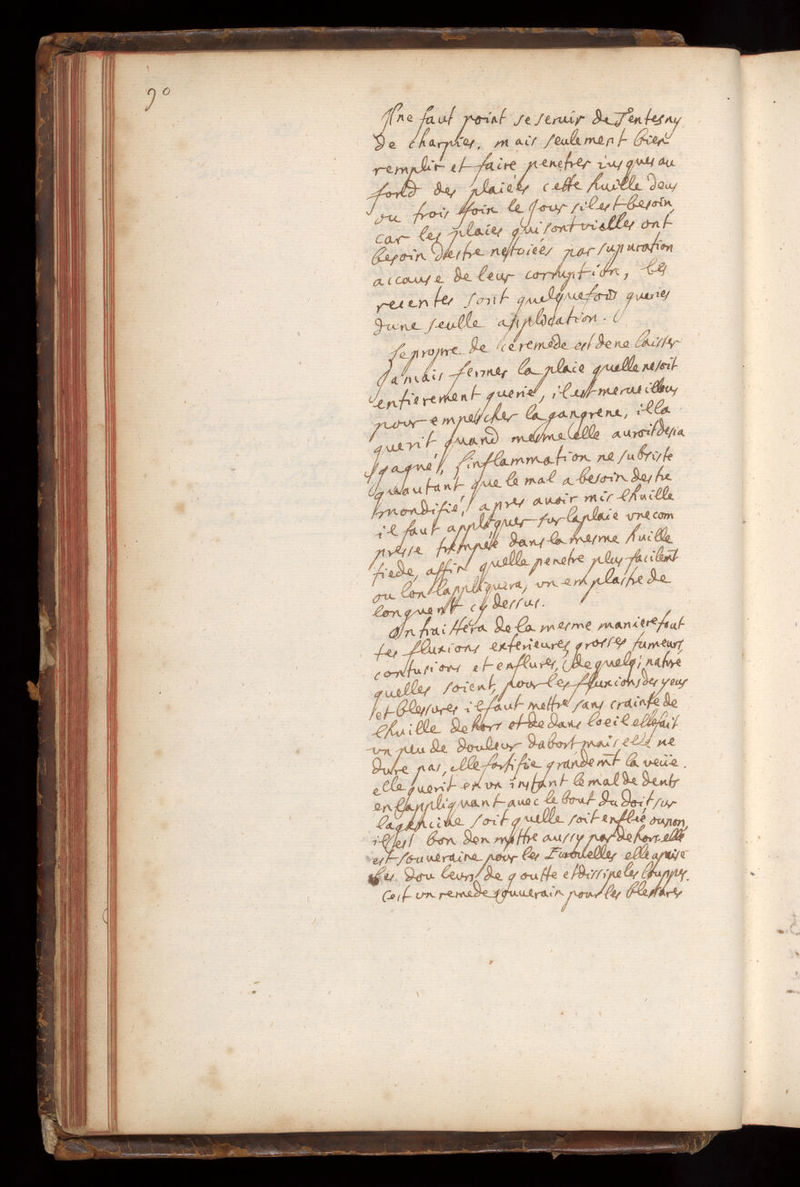 90
Il ne faut point se seruir de Tentes ny
de charpies, mais seulement bien
remplir et faire penetrer iusques au
fond des plaiees cette huille deux
ou trois fois le jour sil est besoin,
car les plaies qui sont vielles ont
besoin destre nettoiées par supuration
accause de leur corruption, les
recentes sont quelquefois gueries
dune seulle application.
le propre de ce remede est de ne laisser
Jamais fermer la plaie quelle ne soit
entierement guerie, il est merueilleux
pour empescher la gangrene, illa
guerit quand mesme elle auroit desia
gagné, linflammation ne subsiste
quautant que le mal a besoin destre
mondifié, apres auoir mis lhuille
il faut appliquer sur la plaie vne com
presse trempée dans la mesme huille
tiede, affin quelle penetre plus facilemt
ou lon lappliquera, vn emplastre de
longuent cy dessus.
On traittera de la mesme maniere tout
tes fluxions exterieures grosses tumeurs
contusions et enflures, de quelq; nature
quelles soient, pour les fluxions des yeux
et blessures il faut mettre sans crainte de
lhuille dehors et dedans loeil elle fait
vn peu de douleur dabort mais elle ne
dure pas, elle fortifie grandemt la veüe.
elle guerit en vn instant le mal de dents
en lappliquant auec le bout du doit sur
la gencive soit quelle soit enflée ou non,
il est bon den mettre aussy par dehors elle
est souueraine pour les Ecrouelles elle apaise
les douleurs de goutte et dissipe les louppes.
Cest vn remede souuerain pour les blessures